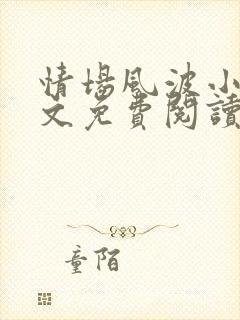 情場風波小
文免費閱讀
童陌